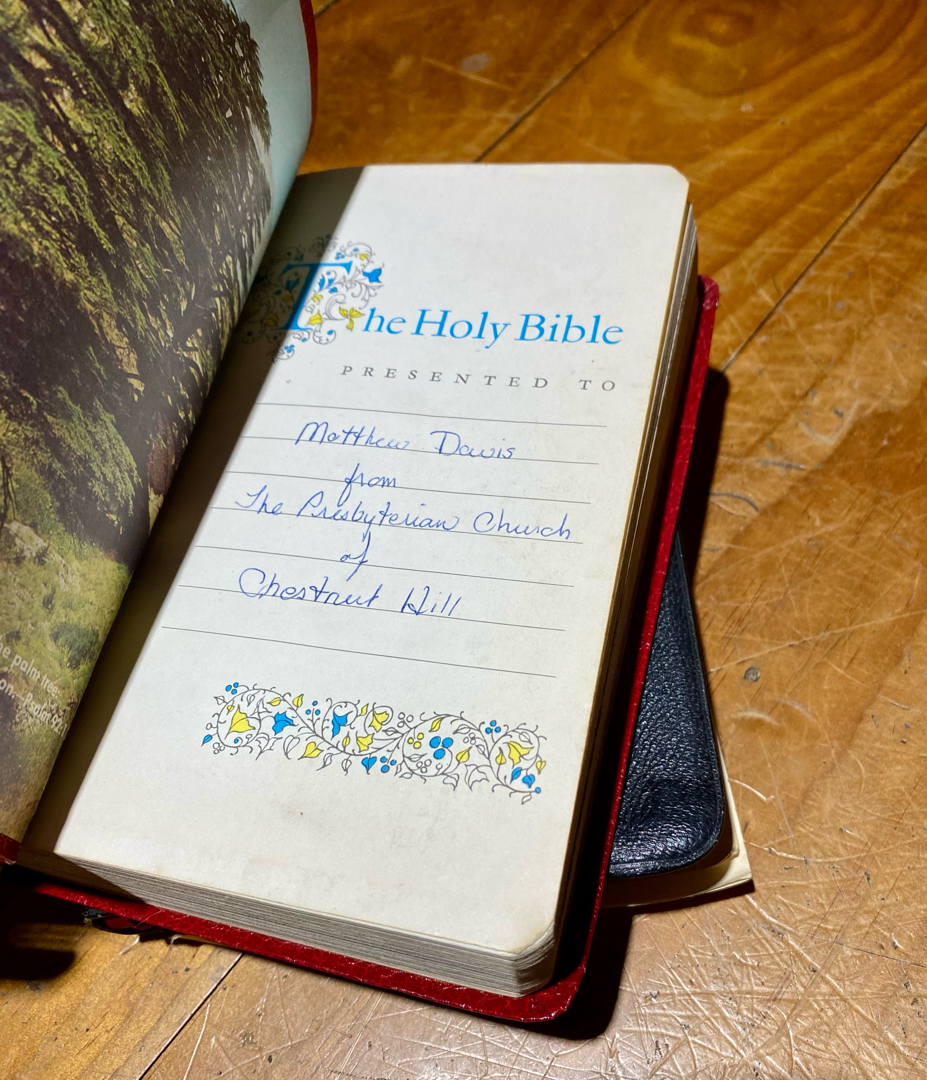 The Holy Bible
PRESENTED TO
Matthew Davis
from
The Presbyterian Church
of
Chestnut Hill
palm tree